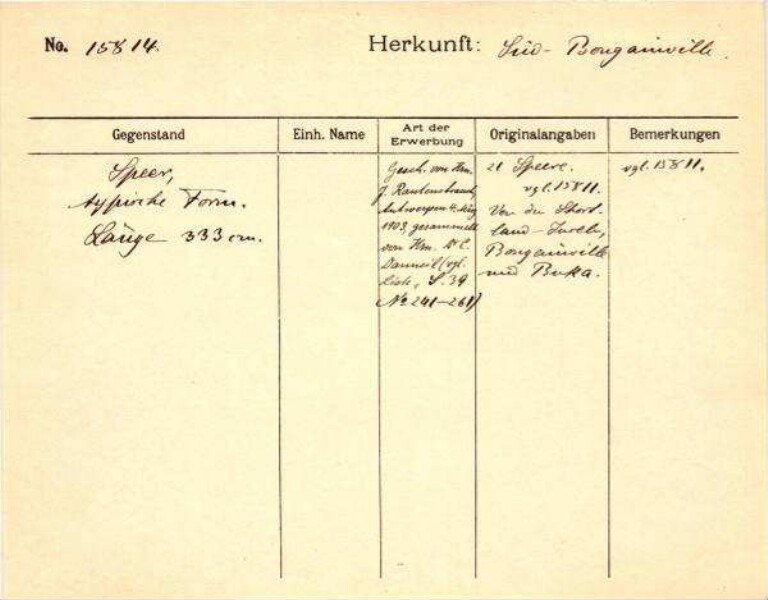 No. 15814. Herkunft: Süd-Bougainville.
Gegenstand Einh. Name Art der Erwerbung Originalangaben Bemerkungen
Speer,
typische Form.
Länge 333 cm.
Gesch. von Hrn.
J. Rautenstrauch,
Antwerpen 4. Aug
1903, gesammelt
von Hrn. Dr. C.
Danneil (vgl.
Liste, S. 39
No 241-261)
21 Speere.
vgl. 15811.
Von den Short-
land-Inseln,
Bougainville
und Buka.
vgl. 15811.